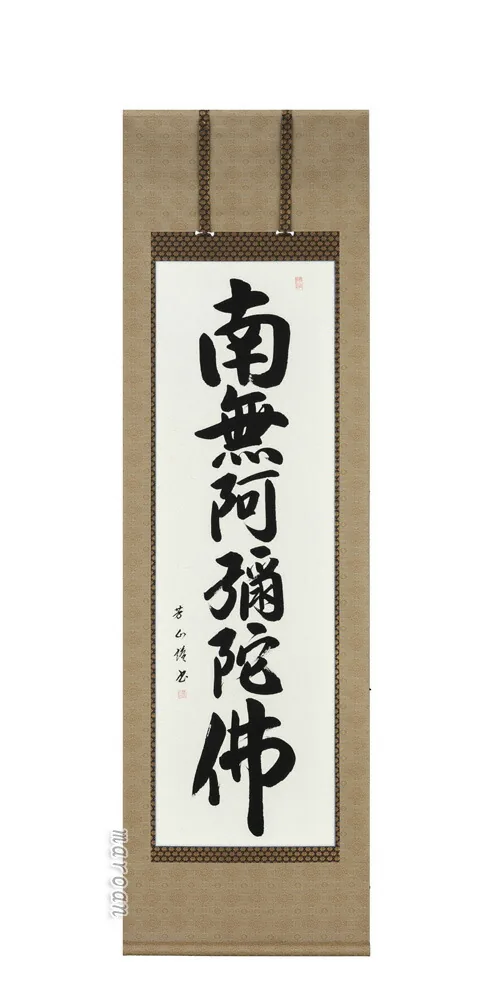 南無阿彌陀佛
芳山愫书
maroan